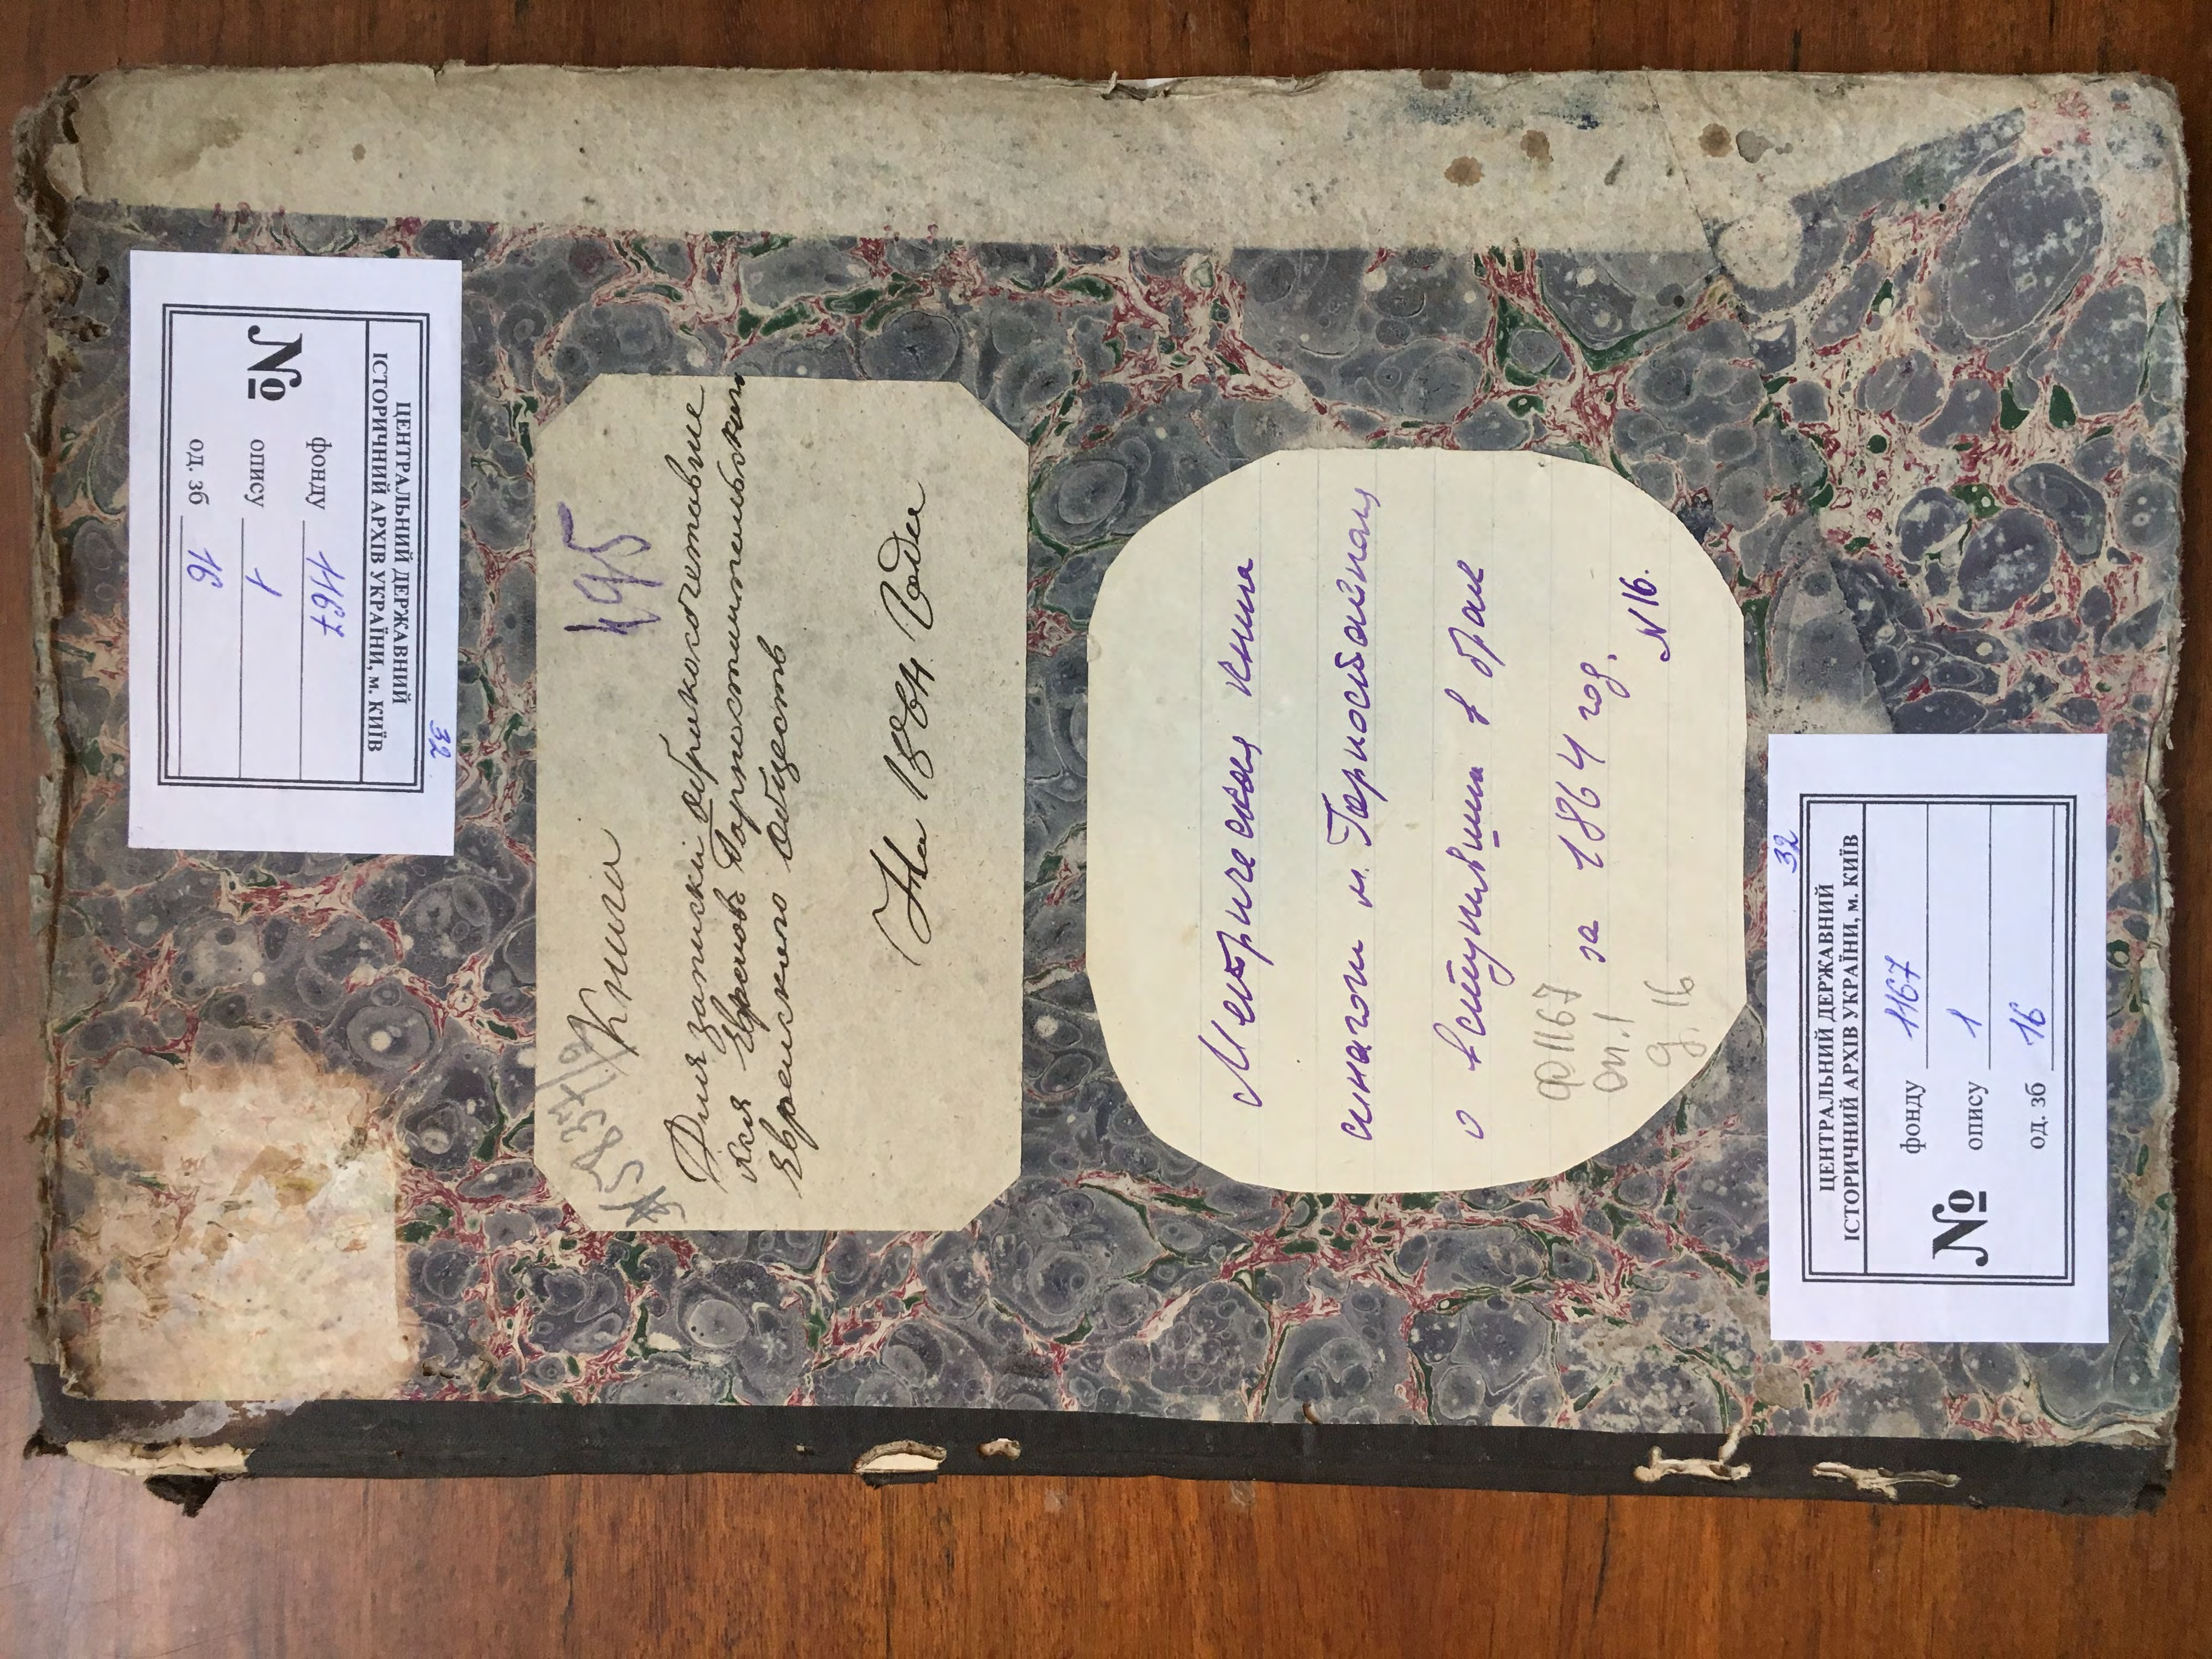 ЦЕНТРАЛЬНИЙ ДЕРЖАВНИЙ
ІСТОРИЧНИЙ АРХІВ УКРАЇНИ, м. КИЇВ
№
фонду 1167
опису 1
од. зб 16
32
495
Книга
Для записки о бракосочетавше
хся Евреив
Еврейского обществ
На 1864 Годъ
Метрическая книга
синагоги м.
о вступивших в брак
за 1864 год.
N 16.
Ф 1167
оп. 1
д. 16
32
ЦЕНТРАЛЬНИЙ ДЕРЖАВНИЙ
ІСТОРИЧНИЙ АРХІВ УКРАЇНИ, м. КИЇВ
№
фонду 1167
опису 1
од. зб 16